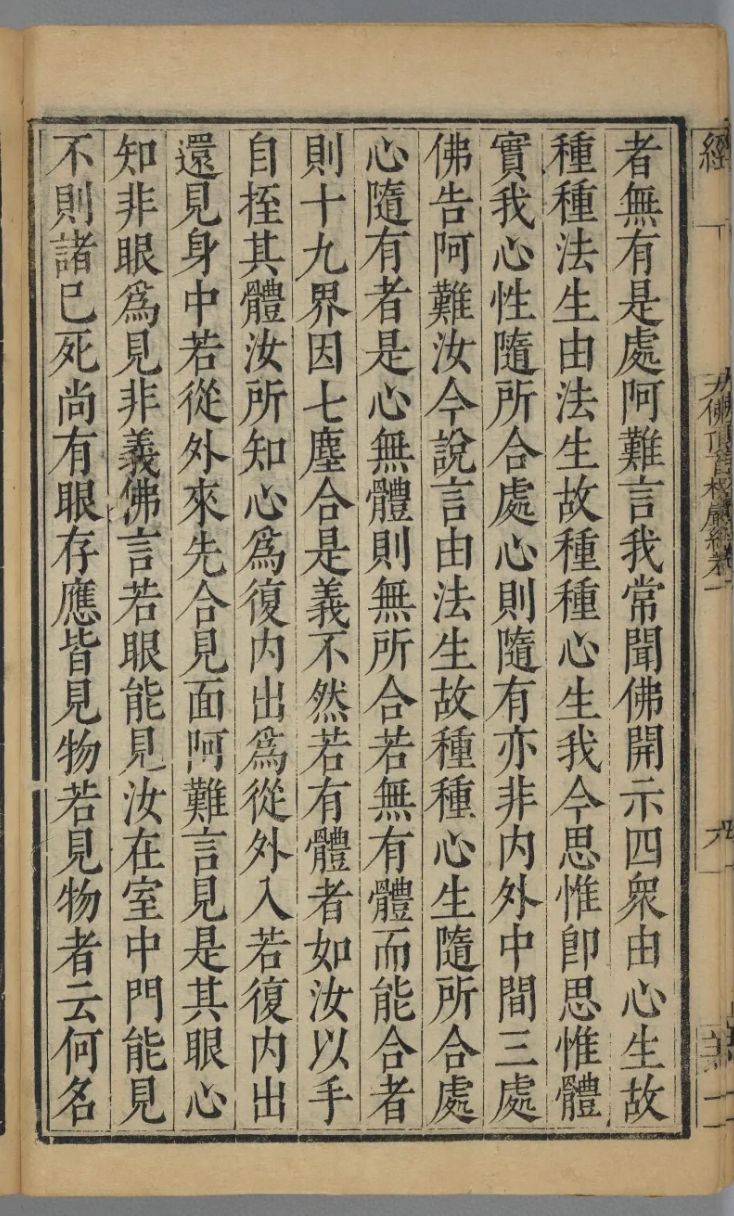 經
大佛頂首楞嚴經卷一
六
者無有是處阿難言我常聞佛開示四衆由心生故
種種法生由法生故種種心生我今思惟卽思惟體
實我心性隨所合處心則隨有亦非内外中間三處
佛告阿難汝今說言由法生故種種心生隨所合處
心隨有者是心無體則無所合若無有體而能合者
則十九界因七塵合是義不然若有體者如汝以手
自挃其體汝所知心爲復内出爲從外入若復内出
還見身中若從外來先合見面阿難言見是其眼心
知非眼爲見非義佛言若眼能見汝在室中門能見
不則諸已死尚有眼存應皆見物若見物者云何名